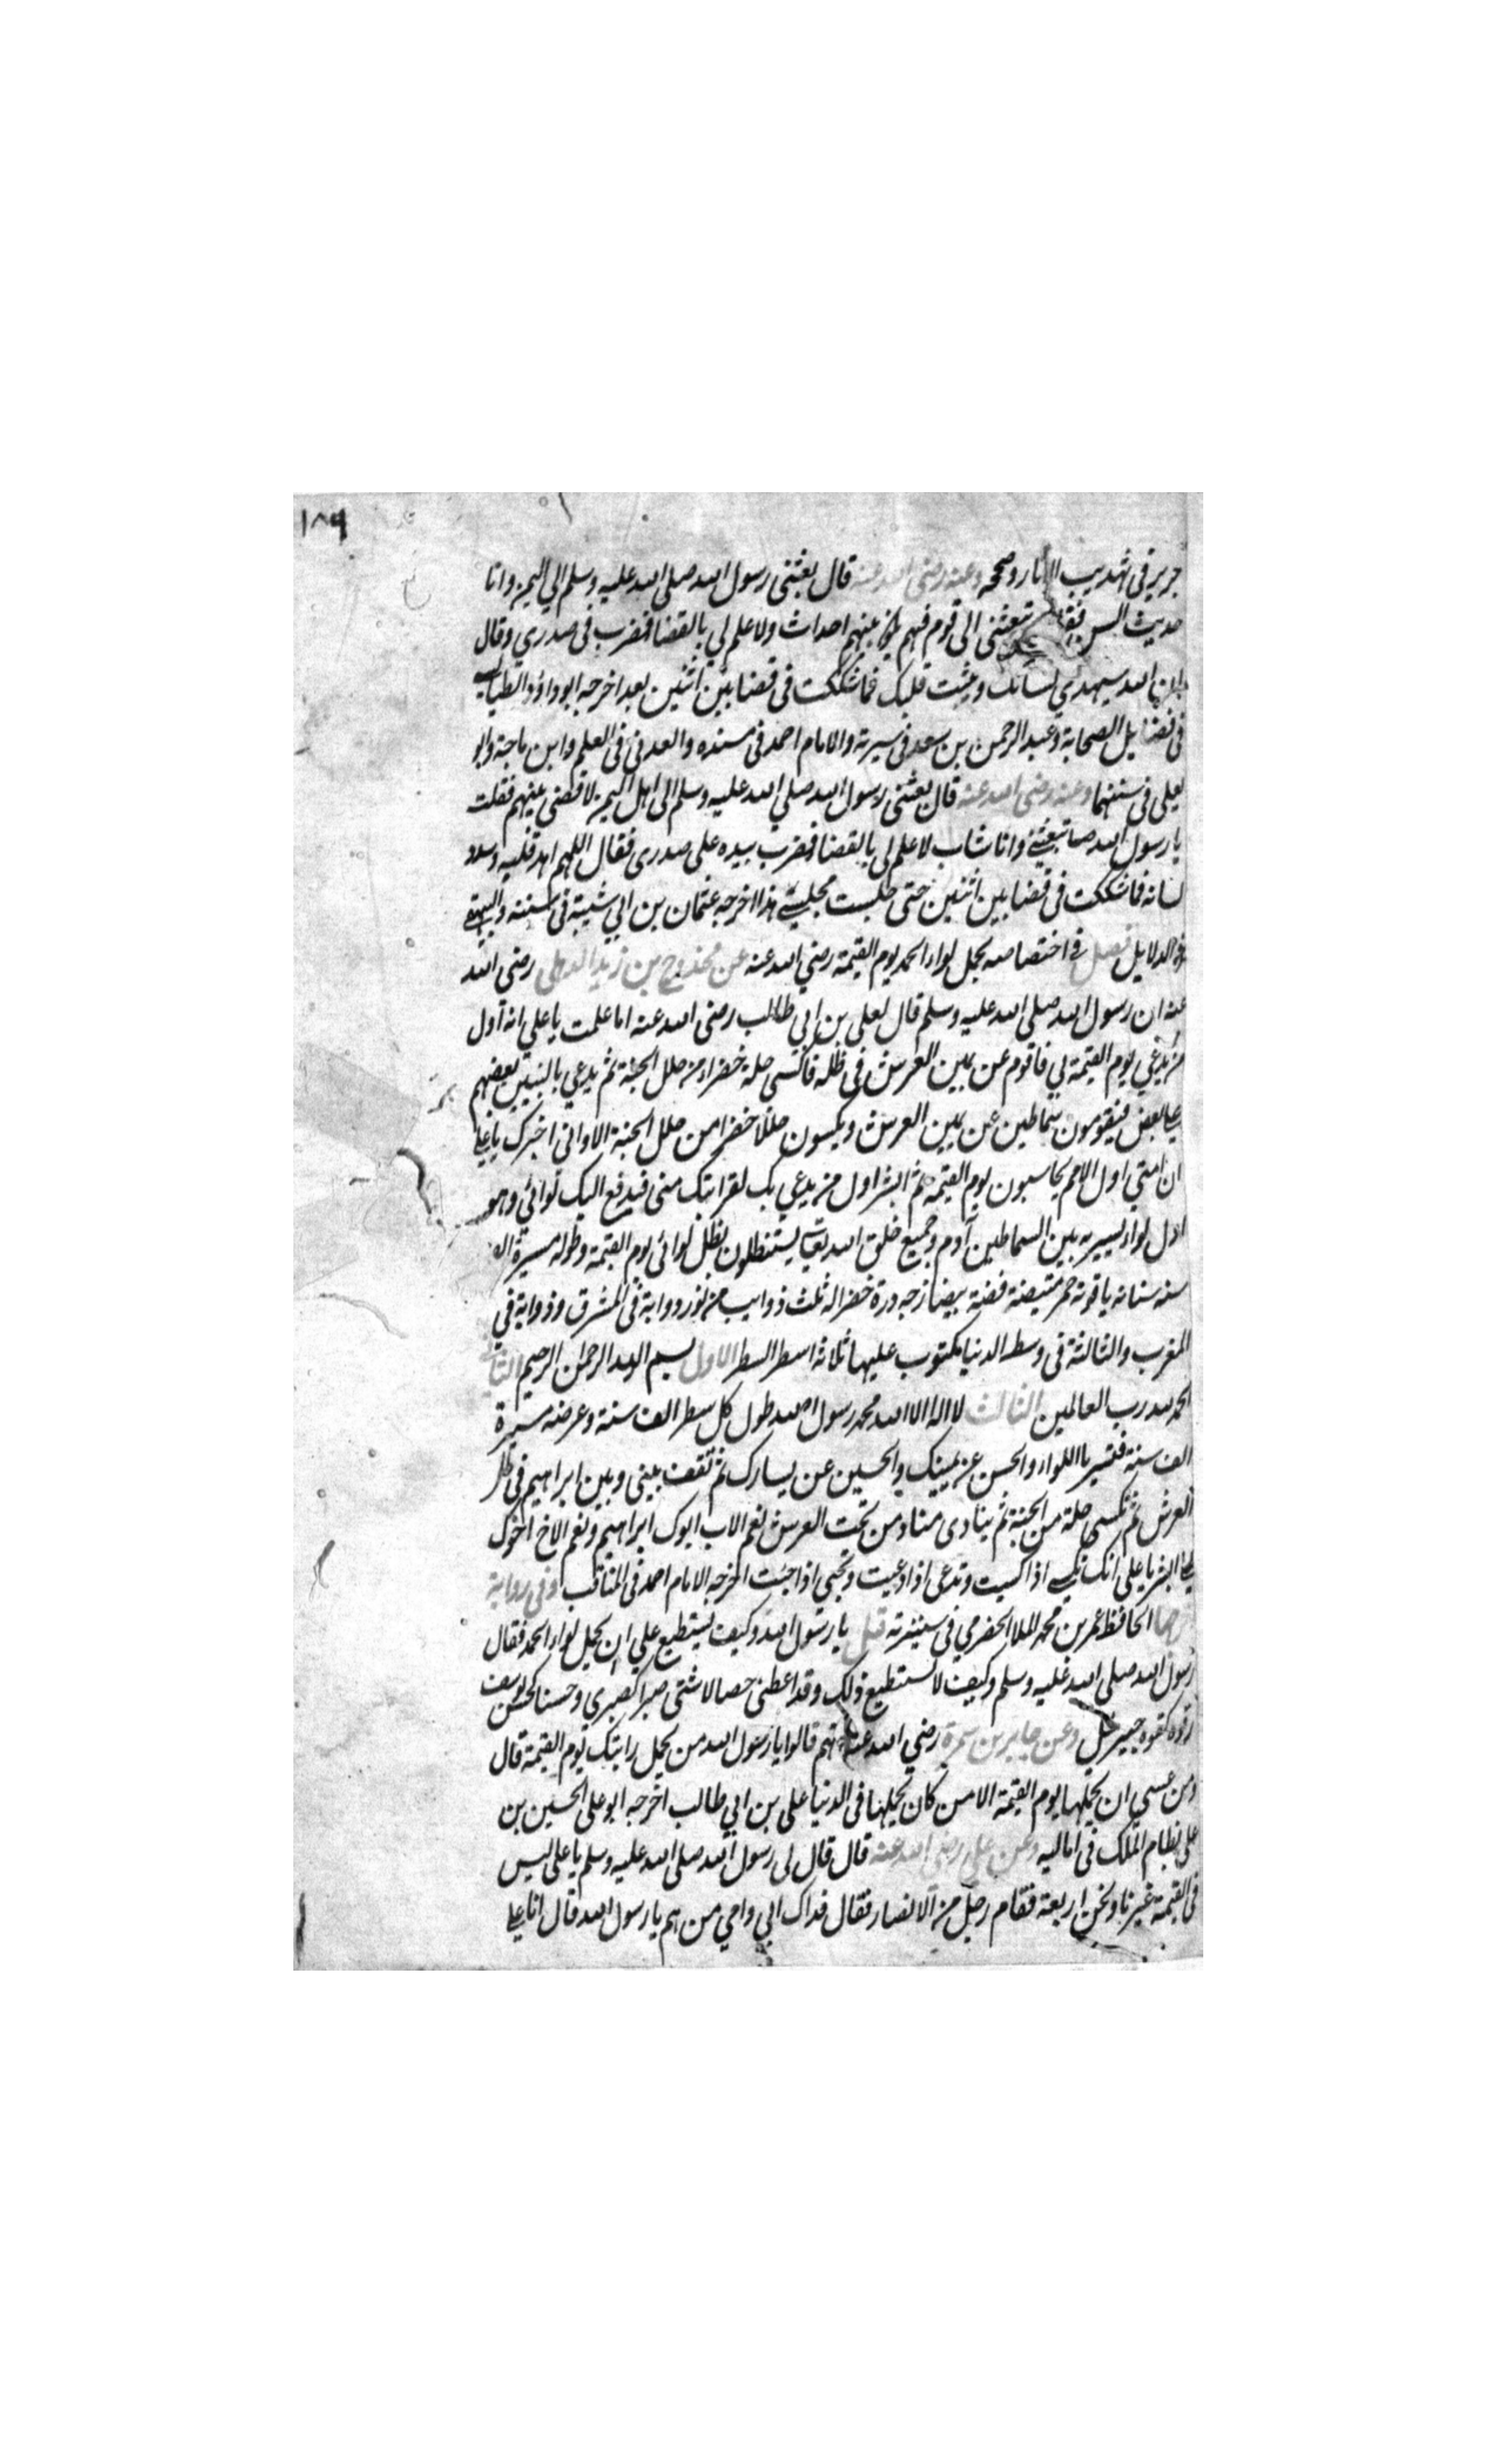 ١٨٩
جرير فى تهذيب الاثار وصححه وعنه رضى الله عنه قال بعثنى رسول الله صلى الله عليه وسلم الي اليمن وانا
حديث السن تبعثنى الى قوم فيهم يكون بينهم احداث ولا علم لي بالقضا فضرب فى صدري وقال
ان الله سيهدي لسانك ويثبت قلبك فما شككت فى قضا بين اثنين بعد اخرجه ابو داؤد الطيالسي
فى فضايل الصحابة وعبد الرحمن بن سعد فى سيرته والامام احمد فى مسنده والعدنى فى العلم وابن ماجة وابو
يعلى فى سننهما وعنه رضى الله عنه قال بعثنى رسول الله صلي الله عليه وسلم الى اهل اليمن لاقضى بينهم فقلت
يا رسول الله تبعثنى وانا شاب لا علم لى بالقضا فضرب بيده على صدرى فقال اللهم اهد قلبه وسدد
لسانه فما شككت فى قضا بين اثنين حتى جلست مجلسي هذا اخرجه عثمان بن ابي شيبة فى سننه والبيهقى
فى الدلايل فصل فى اختصاصه بحمل لواء الحمد يوم القيمة رضي الله عنه عن مخدوج بن زيد الذهلى رضى الله
عنه ان رسول الله صلى الله عليه وسلم قال لعلى بن ابي طالب رضى الله عنه اما علمت يا علي انه اول
من يدعي يوم القيمة بي فاقوم عن يمين العرش فى ظله فاكسى حلة خضراء من حلل الجنة ثم يدعي بالنبيين بعضهم
على بعض فيقومون سماطين عن يمين العرش ويكسون حللا خضرا من حلل الجنة الا وانى اخبرك يا على
ان امتي اول الامم يحاسبون يوم القيمة ثم ابشر اول من يدعي بك لقرابتك منى فيدفع اليك لوائي وهو
اول لواء يسير به بين السماطين آدم وجميع خلق الله تعالى يستظلون بظل لوائى يوم القيمة وطوله مسيرة الف
سنه سنانه ياقوتة حمرا قبضته فضة بيضا زجه درة خضرا له ثلث ذوايب من نور ذوابة فى المشرق وذوابة في
المغرب والثالثة فى وسط الدنيا مكتوب عليها ثلاثه اسطر السطر الاول بسم الله الرحمن الرحيم الثانى
الحمد لله رب العالمين الثالث لا اله الا الله محمد رسول الله طول كل سطر الف سنة وعرضه مسيرة
الف سنة فتسير باللواء والحسن عن يمينك والحسين عن يسارك ثم تقف بينى وبين ابراهيم فى ظل
العرش ثم تكسى حلة من الجنة ثم ينادى مناد من تحت العرش نعم الاب ابوك ابراهيم ونعم الاخ اخوك
على ابشر يا على انك تكسى اذا كسيت وتدعى اذا دعيت وتحيى اذا حييت اخرجه الامام احمد فى المناقب وفى رواية
الحافظ عمر بن محمد الملا الحضرمي فى سيرته قيل يا رسول الله وكيف يستطيع علي ان يحمل لواء الحمد فقال
رسول الله صلى الله عليه وسلم وكيف لا يستطيع ذلك وقد اعطى خصالا شتى صبرا كصبري وحسنا كحسن يوسف
وقوة كقوة جبريل وعن جابر بن سمرة رضي الله عنه انهم قالوا يا رسول الله من يحمل رايتك يوم القيمة قال
ومن عسى ان يحملها يوم القيمة الا من كان يحملها فى الدنيا على بن ابي طالب اخرجه ابو على الحسين بن
على نظام الملك فى اماليه وعن علي رضى الله عنه قال قال لى رسول الله صلى الله عليه وسلم يا على ليس
فى القيمة غيرنا ونحن اربعة فقام رجل من الانصار فقال فداك ابي وامي من هم يا رسول الله قال انا على